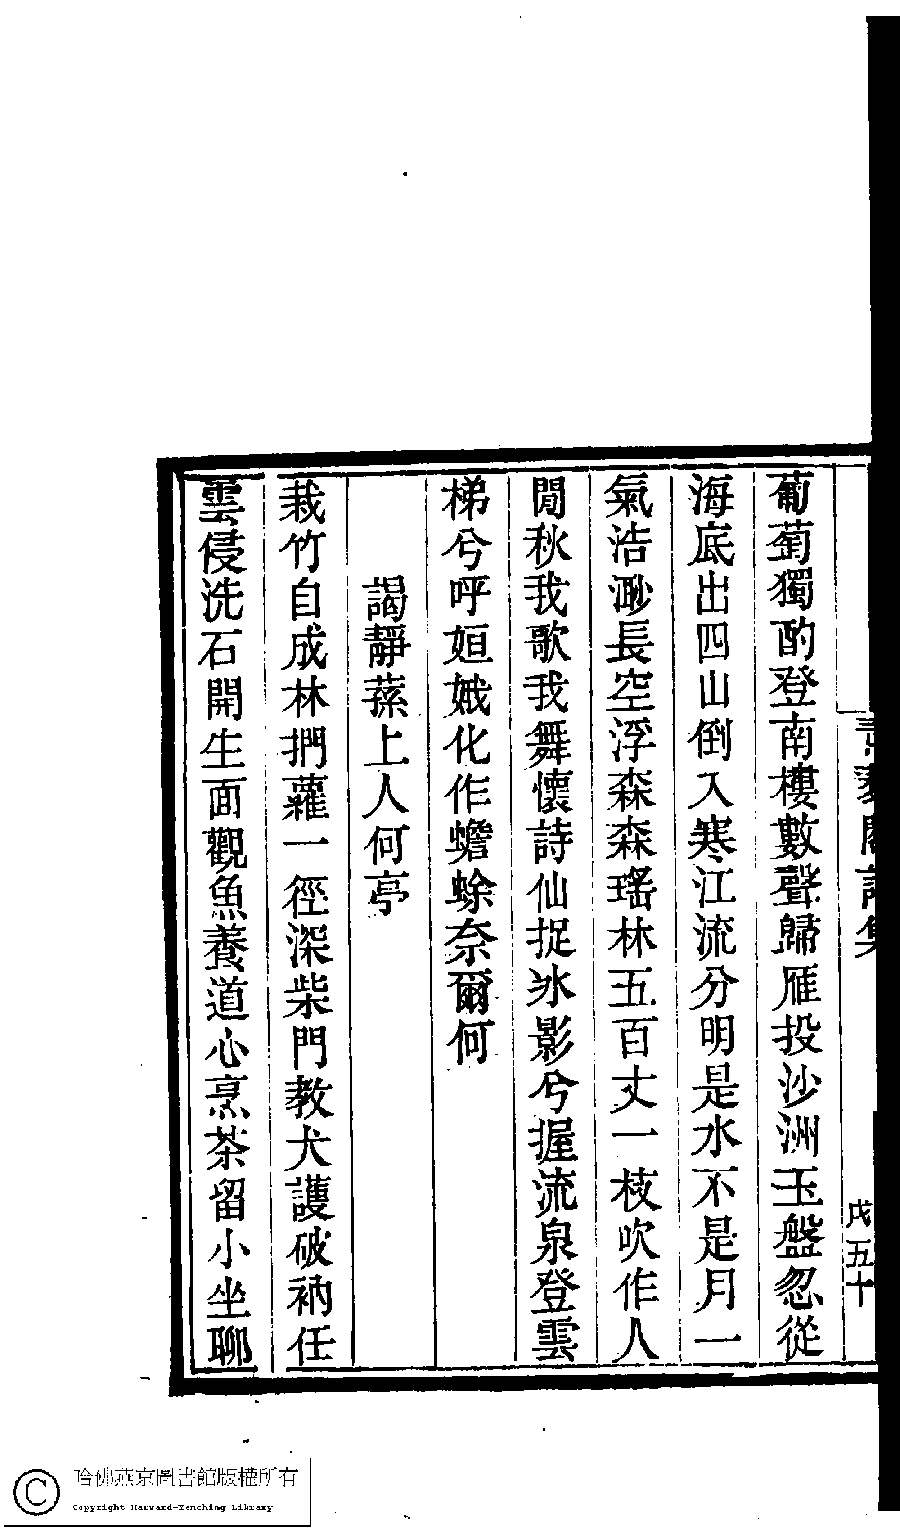 葡萄獨酌登南樓數聲歸雁投沙洲玉盤忽從
海底出四山倒入寒江流分明是水不是月一
氣浩渺長空浮森森瑤林五百丈一枝吹作人
閒秋我歌我舞懷詩仙捉氷影兮握流泉登雲
梯兮呼姮娥化作蟾蜍奈爾何
謁靜蓀上人何亭
栽竹自成林捫蘿一徑深柴門教犬護破衲任
雲侵洗石開生面觀魚養道心烹茶留小坐聊
戊五十
哈佛燕京圖書館版權所有
Copyright Harvard-Yenching Library